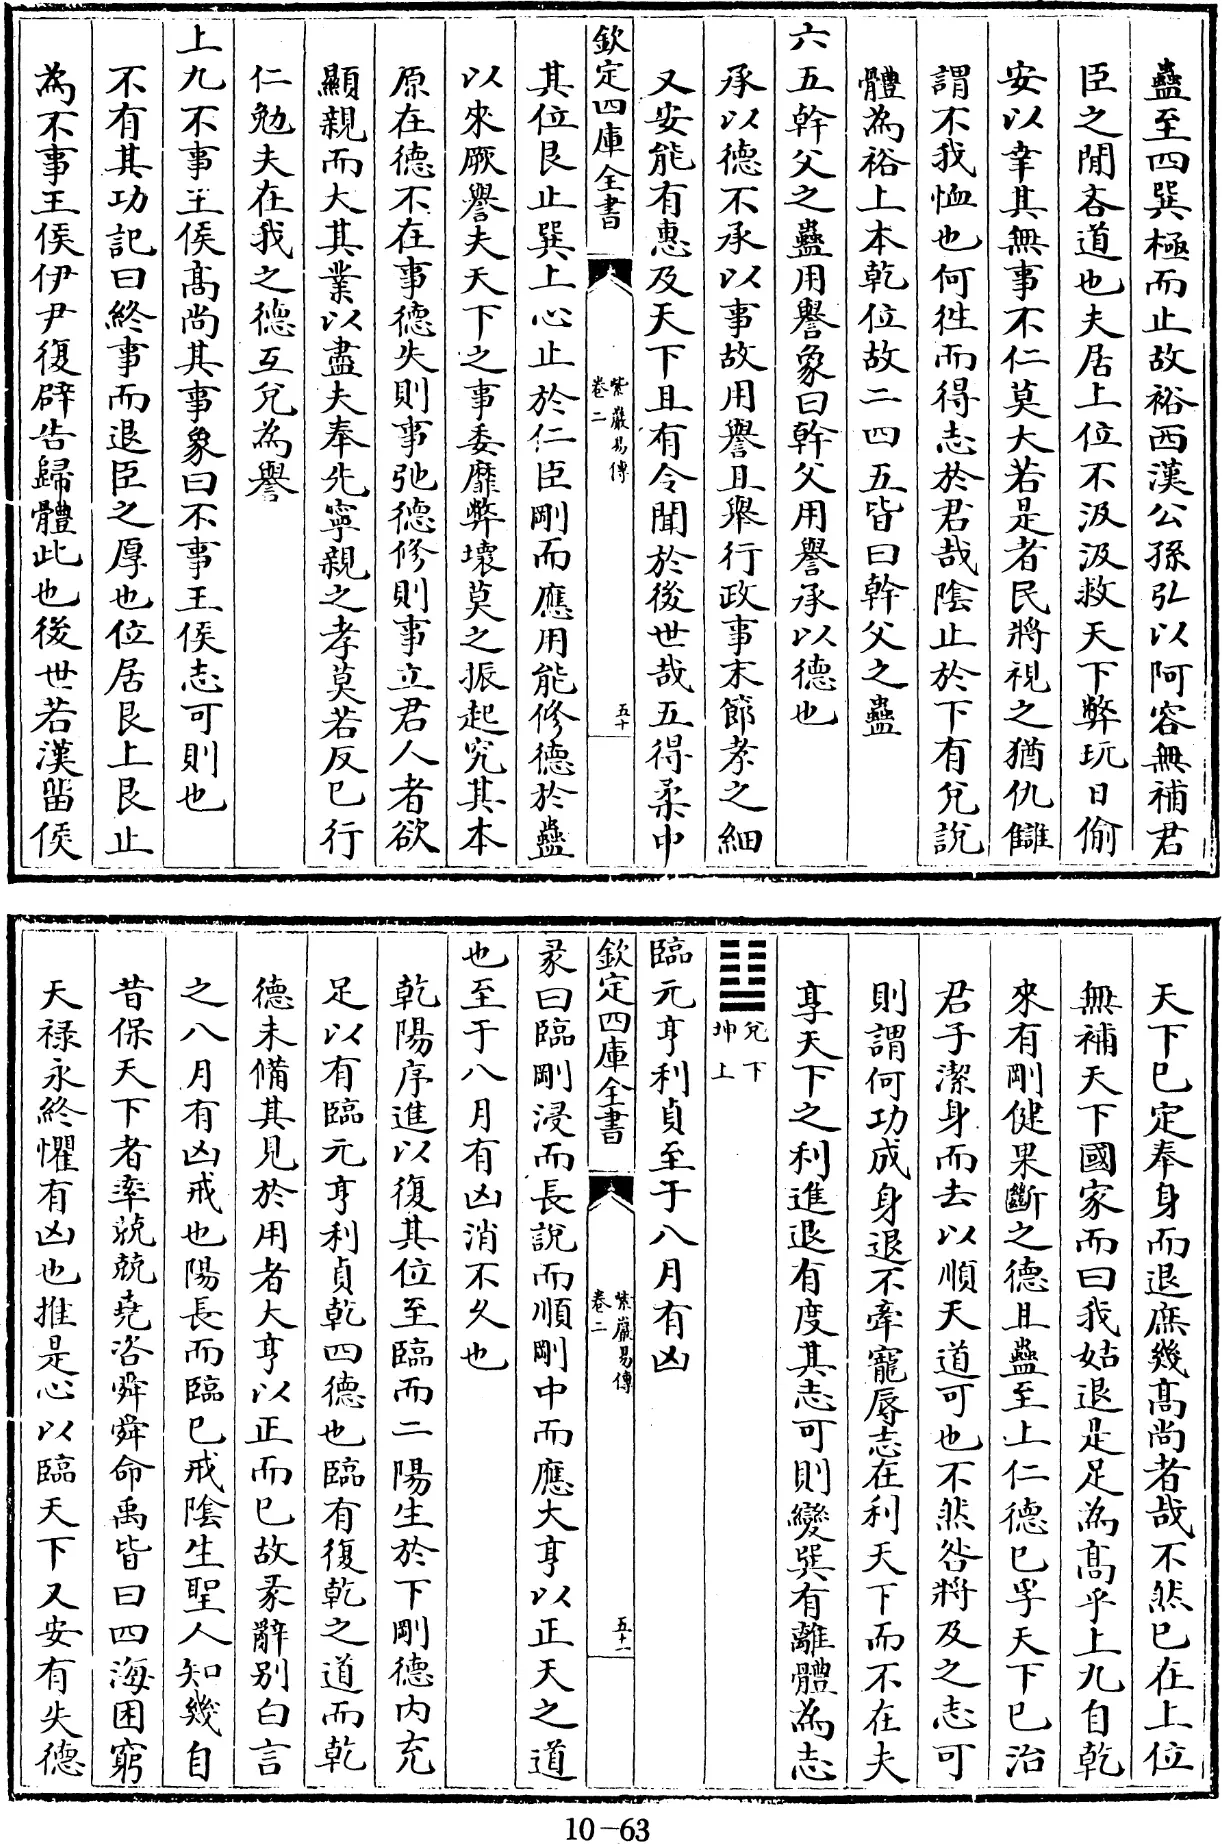 蠱至四巽極而止故裕西漢公孫弘以阿容無補君
臣之閒吝道也夫居上位不汲汲救天下弊玩日偷
安以幸其無事不仁莫大若是者民將視之猶仇讎
謂不我恤也何徃而得志於君哉隂止於下有兌說
體為裕上本乾位故二四五皆曰幹父之蠱
六五幹父之蠱用譽象曰幹父用譽承以德也
承以德不承以事故用譽且舉行政事末節孝之細
又安能有惠及天下且有令聞於後世哉五得柔中
欽定四庫全書
紫巖易傳
卷二
五十
其位艮止巽上心止於仁臣剛而應用能修德於蠱
以來厥譽夫天下之事委靡弊壞莫之振起究其本
原在德不在事德失則事弛德修則事立君人者欲
顯親而大其業以盡夫奉先寧親之孝莫若反已行
仁勉夫在我之德互兌為譽
上九不事王侯髙尚其事象曰不事王侯志可則也
不有其功記曰終事而退臣之厚也位居艮上艮止
為不事王侯伊尹復辟告歸體此也後世若漢留侯
天下已定奉身而退庶幾髙尚者哉不然已在上位
無補天下國家而曰我姑退是足為髙乎上九自乾
來有剛健果斷之德且蠱至上仁德已孚天下已治
君子潔身而去以順天道可也不然咎將及之志可
則謂何功成身退不牽寵辱志在利天下而不在夫
享天下之利進退有度其志可則變巽有離體為志
䷒
兌下
坤上
臨元亨利貞至于八月有凶
欽定四庫全書
紫巖易傳
卷二
五十一
彖曰臨剛浸而長說而順剛中而應大亨以正天之道
也至于八月有凶消不久也
乾陽序進以復其位至臨而二陽生於下剛德内充
足以有臨元亨利貞乾四德也臨有復乾之道而乾
德未備其見於用者大亨以正而已故彖辭别白言
之八月有凶戒也陽長而臨已戒隂生聖人知幾自
昔保天下者率兢兢堯咨舜舜命禹皆曰四海困窮
天禄永終懼有凶也推是心以臨天下又安有失德
10-63